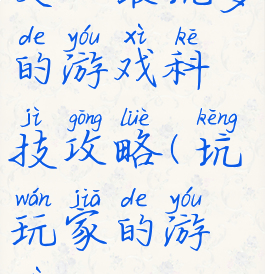 de yóu xì kē
的游戏科
jì gōng lüè kēng
技攻略(坑
wán jiā de yóu
玩家的游